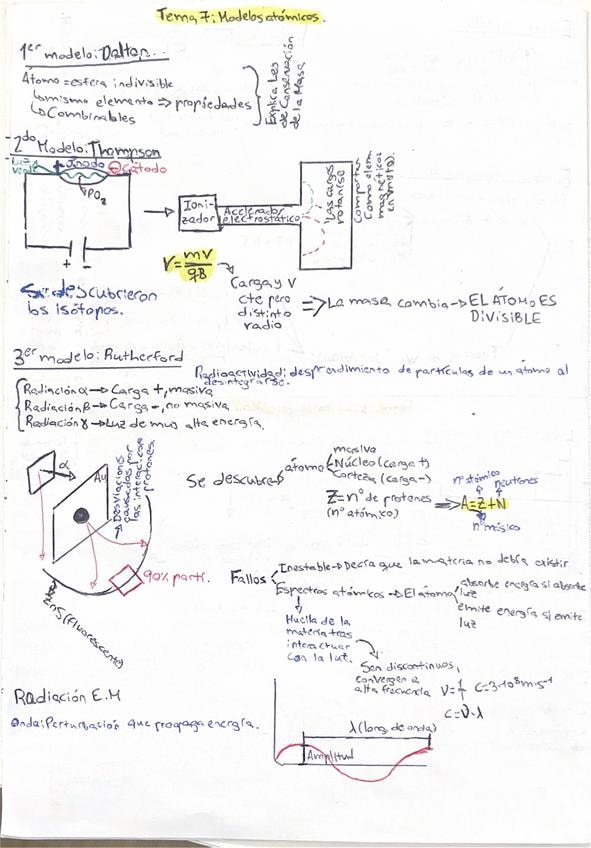 Tema 7: Modelos atómicos.
1er modelo: Dalton.
Átomo = esfera indivisible
↳ mismo elemento => propiedades
↳ Combinables
Explica Ley de Conservación de la Masa
2do Modelo: Thompson
Luz verde
+ Ánodo
⊖ Cátodo
PO2
+ -
Ioni-
zador
Acelerador
electrostático
Las cargas
rotan (se
comportan
como elem.
magnéticos
en vmuto).
V = mV/qB
Carga y V
cte pero
distinto
radio
=> La masa cambia → EL ÁTOMO ES
DIVISIBLE
descubrieron
los isótopos.
3er modelo: Rutherford
Radioactividad: desprendimiento de partículas de un átomo al
desintegrarse.
Radiación α → Carga +, masiva
Radiación β → Carga -, no masiva
Radiación γ → Luz de muy alta energía.
α
Au
Desviaciones
causadas por
las interacciones
protones.
90% partí.
ZnS (fluorescente)
Se descubre → átomo
masiva
Núcleo (carga +)
Corteza (carga -)
Z = nº de protones
(nº atómico)
=> A = Z + N
nº atómico
neutrones
nº másico
Fallos
Inestable → Decía que la materia no debía existir
Espectros atómicos → El átomo
absorbe energía si absorbe
luz
emite energía si emite
luz
Huella de la
materia tras
interactuar
con la luz.
Son discontinuos,
convergen a
alta frecuencia
ν = 1/T
c = 3·10⁸ m·s⁻¹
c = ν·λ
Radiación E.M
Onda: Perturbación que propaga energía.
λ (long. de onda)
Amplitud